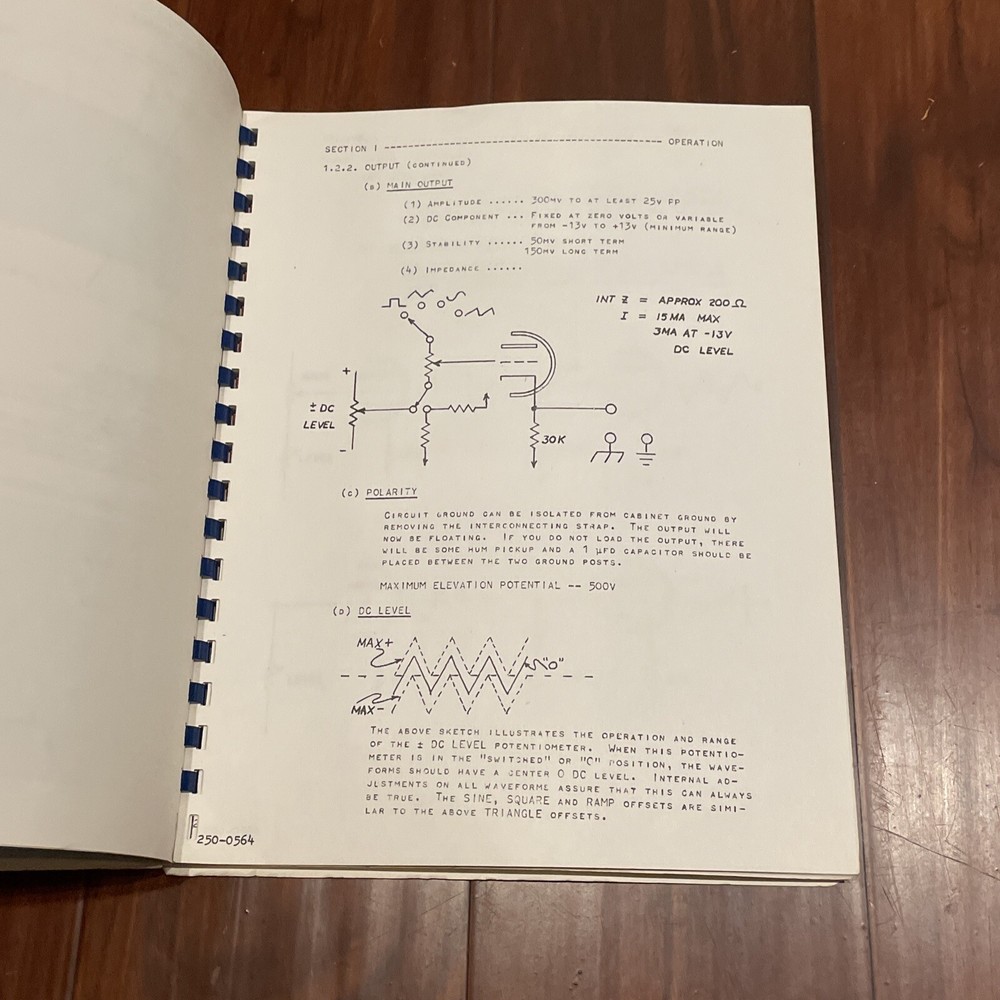 SECTION 1 ---------------------------------------- OPERATION
1.2.2. OUTPUT (CONTINUED)
(B) MAIN OUTPUT
(1) AMPLITUDE ...... 300MV TO AT LEAST 25V PP
(2) DC COMPONENT ... FIXED AT ZERO VOLTS OR VARIABLE
FROM -13V TO +13V (MINIMUM RANGE)
(3) STABILITY ...... 50MV SHORT TERM
150MV LONG TERM
(4) IMPEDANCE ......
INT Z = APPROX 200Ω
I = 15MA MAX
3MA AT -13V
DC LEVEL
+
± DC
LEVEL
-
30K
(C) POLARITY
CIRCUIT GROUND CAN BE ISOLATED FROM CABINET GROUND BY
REMOVING THE INTERCONNECTING STRAP. THE OUTPUT WILL
NOW BE FLOATING. IF YOU DO NOT LOAD THE OUTPUT, THERE
WILL BE SOME HUM PICKUP AND A 1 µFD CAPACITOR SHOULD BE
PLACED BETWEEN THE TWO GROUND POSTS.
MAXIMUM ELEVATION POTENTIAL -- 500V
(D) DC LEVEL
MAX+
"0"
MAX-
THE ABOVE SKETCH ILLUSTRATES THE OPERATION AND RANGE
OF THE ± DC LEVEL POTENTIOMETER. WHEN THIS POTENTIO-
METER IS IN THE "SWITCHED" OR "0" POSITION, THE WAVE-
FORMS SHOULD HAVE A CENTER 0 DC LEVEL. INTERNAL AD-
JUSTMENTS ON ALL WAVEFORMS ASSURE THAT THIS CAN ALWAYS
BE TRUE. THE SINE, SQUARE AND RAMP OFFSETS ARE SIMI-
LAR TO THE ABOVE TRIANGLE OFFSETS.
250-0564